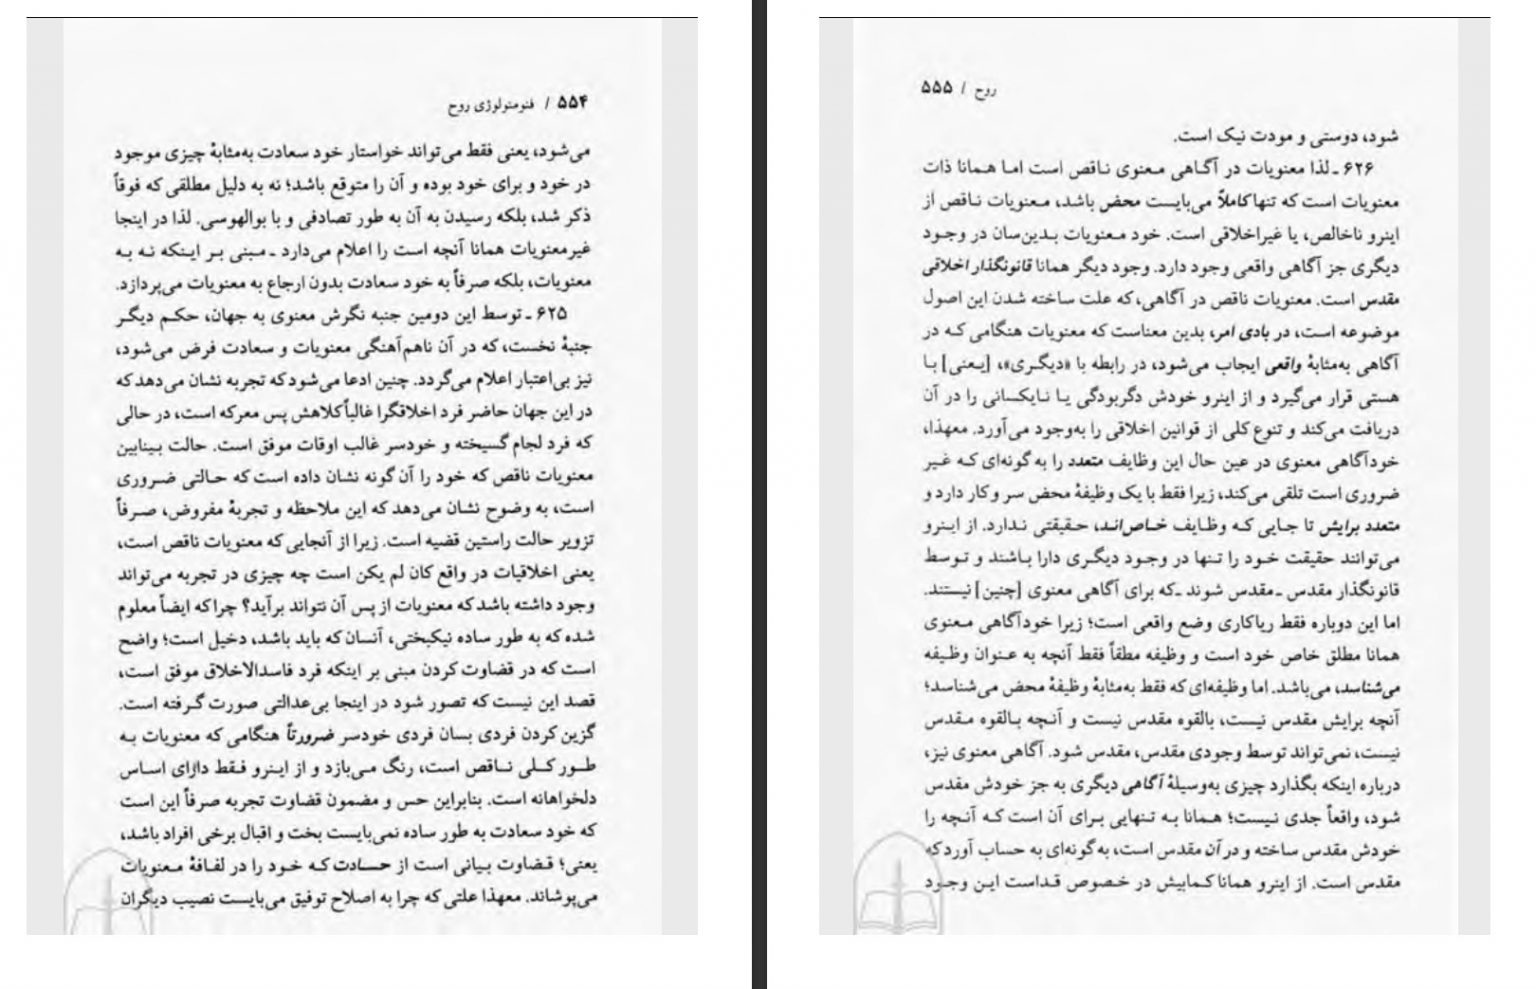 ۵۵۴ / فنومنولوژی روح
می‌شود، یعنی فقط می‌تواند خواستار خود سعادت به‌مثابهٔ چیزی موجود
در خود و برای خود بوده و آن را متوقع باشد؛ نه به دلیل مطلقی که فوقاً
ذکر شد، بلکه رسیدن به آن به طور تصادفی و با بوالهوسی. لذا در اینجا
غیرمعنویات همانا آنچه است را اعلام می‌دارد ـ مبنی بر اینکه نه به
معنویات، بلکه صرفاً به خود سعادت بدون ارجاع به معنویات می‌پردازد.
۶۲۵ ـ توسط این دومین جنبه نگرش معنوی به جهان، حکم دیگر
جنبهٔ نخست، که در آن ناهم‌آهنگی معنویات و سعادت فرض می‌شود،
نیز بی‌اعتبار اعلام می‌گردد. چنین ادعا می‌شود که تجربه نشان می‌دهد که
در این جهان حاضر فرد اخلاقگرا غالباً کلاهش پس معرکه است، در حالی
که فرد لجام گسیخته و خودسر غالب اوقات موفق است. حالت بینابین
معنویات ناقص که خود را آن گونه نشان داده است که حالتی ضروری
است، به وضوح نشان می‌دهد که این ملاحظه و تجربهٔ مفروض، صرفاً
تزویر حالت راستین قضیه است. زیرا از آنجایی که معنویات ناقص است،
یعنی اخلاقیات در واقع کان لم یکن است چه چیزی در تجربه می‌تواند
وجود داشته باشد که معنویات از پس آن نتواند برآید؟ چرا که ایضاً معلوم
شده که به طور ساده نیکبختی، آنسان که باید باشد، دخیل است؛ واضح
است که در قضاوت کردن مبنی بر اینکه فرد فاسدالاخلاق موفق است،
قصد این نیست که تصور شود در اینجا بی‌عدالتی صورت گرفته است.
گزین کردن فردی بسان فردی خودسر ضرورتاً هنگامی که معنویات به
طور کلی ناقص است، رنگ می‌بازد و از اینرو فقط دارای اساس
دلخواهانه است. بنابراین حس و مضمون قضاوت تجربه صرفاً این است
که خود سعادت به طور ساده نمی‌بایست بخت و اقبال برخی افراد باشد،
یعنی؛ قضاوت بیانی است از حسادت که خود را در لفافهٔ معنویات
می‌پوشاند. معهذا علتی که چرا به اصلاح توفیق می‌بایست نصیب دیگران
روح / ۵۵۵
شود، دوستی و مودت نیک است.
۶۲۶ ـ لذا معنویات در آگاهی معنوی ناقص است اما همانا ذات
معنویات است که تنها کاملاً می‌بایست محض باشد، معنویات ناقص از
اینرو ناخالص، یا غیراخلاقی است. خود معنویات بدین‌سان در وجود
دیگری جز آگاهی واقعی وجود دارد. وجود دیگر همانا قانونگذار اخلاقی
مقدس است. معنویات ناقص در آگاهی، که علت ساخته شدن این اصول
موضوعه است، در بادی امر، بدین معناست که معنویات هنگامی که در
آگاهی به‌مثابهٔ واقعی ایجاب می‌شود، در رابطه با «دیگری»، [یعنی] با
هستی قرار می‌گیرد و از اینرو خودش دگربودگی یا نایکسانی را در آن
دریافت می‌کند و تنوع کلی از قوانین اخلاقی را به‌وجود می‌آورد. معهذا،
خودآگاهی معنوی در عین حال این وظایف متعدد را به گونه‌ای که غیر
ضروری است تلقی می‌کند، زیرا فقط با یک وظیفهٔ محض سر و کار دارد و
متعدد برایش تا جایی که وظایف خاص‌اند، حقیقتی ندارد. از اینرو
می‌توانند حقیقت خود را تنها در وجود دیگری دارا باشند و توسط
قانونگذار مقدس ـ مقدس شوند ـ که برای آگاهی معنوی [چنین] نیستند.
اما این دوباره فقط ریاکاری وضع واقعی است؛ زیرا خودآگاهی معنوی
همانا مطلق خاص خود است و وظیفه مطقاً فقط آنچه به عنوان وظیفه
می‌شناسد، می‌باشد. اما وظیفه‌ای که فقط به‌مثابهٔ وظیفهٔ محض می‌شناسد؛
آنچه برایش مقدس نیست، بالقوه مقدس نیست و آنچه بالقوه مقدس
نیست، نمی‌تواند توسط وجودی مقدس، مقدس شود. آگاهی معنوی نیز،
درباره اینکه بگذارد چیزی به‌وسیلهٔ آگاهی دیگری به جز خودش مقدس
شود، واقعاً جدی نیست؛ همانا به تنهایی برای آن است که آنچه را
خودش مقدس ساخته و در آن مقدس است، به گونه‌ای به حساب آورد که
مقدس است. از اینرو همانا کمابیش در خصوص قداست این وجود